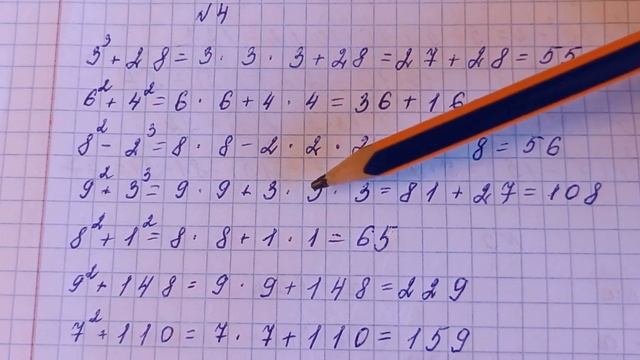 №4
3³ + 28 = 3 · 3 · 3 + 28 = 27 + 28 = 55
6² + 4² = 6 · 6 + 4 · 4 = 36 + 16
8² - 2³ = 8 · 8 - 2 · 2 · 8 = 56
9² + 3³ = 9 · 9 + 3 · 3 · 3 = 81 + 27 = 108
8² + 1² = 8 · 8 + 1 · 1 = 65
9² + 148 = 9 · 9 + 148 = 229
7² + 110 = 7 · 7 + 110 = 159